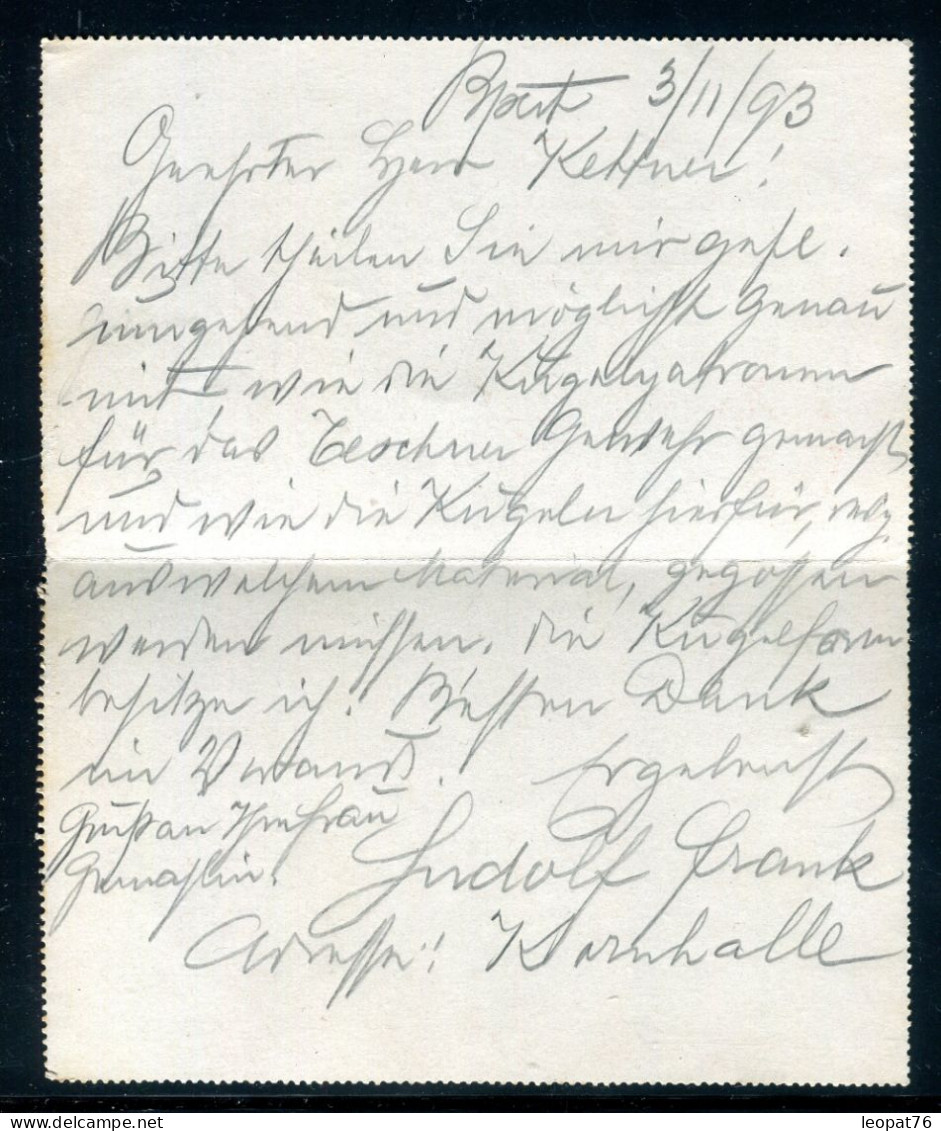 Bpest 3/11/93
Geehrter Herr Kettner!
Bitte theilen Sie mir gefl.
umgehend und möglichst genau
mit wie die Kugelpatronen
für das Teschner Gewehr gemacht
und wie die Kugeln hierfür, resp.
aus welchem Material, gegossen
werden müssen. die Kugelform
besitze ich! Besten Dank
im Voraus. Ergebenst
Gruß an Ihre Frau
Gemahlin. Ludolf Frank
Adresse: Kornhalle
leopat76